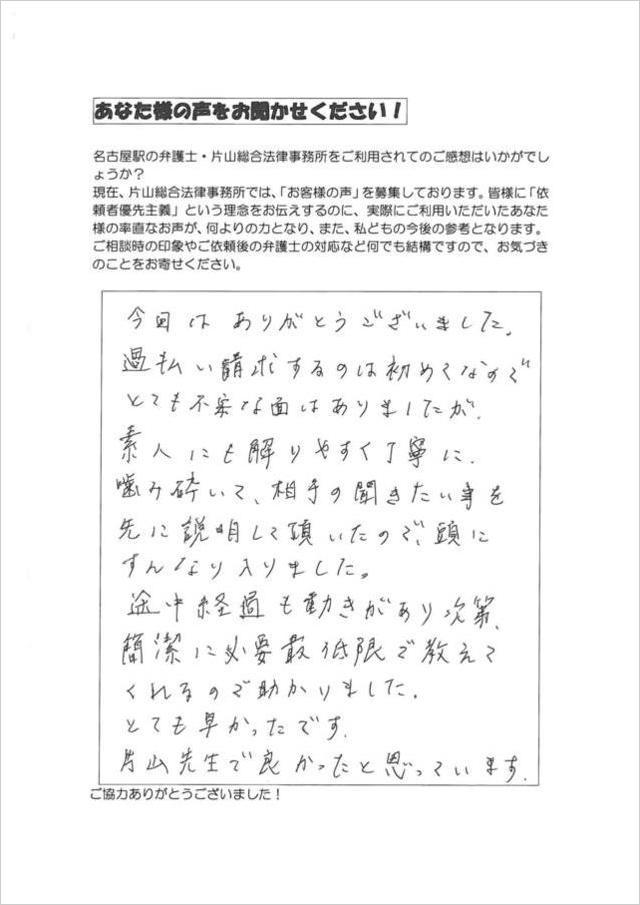 あなた様の声をお聞かせください！
名古屋駅の弁護士・片山総合法律事務所をご利用されてのご感想はいかがでし
ょうか？
現在、片山総合法律事務所では、「お客様の声」を募集しております。皆様に「依
頼者優先主義」という理念をお伝えするのに、実際にご利用いただいたあなた
様の率直なお声が、何よりの力となり、また、私どもの今後の参考となります。
ご相談時の印象やご依頼後の弁護士の対応など何でも結構ですので、お気づき
のことをお寄せください。
今回は ありがとうございました。
過払い請求するのは初めてなので
とても不安な面はありましたが、
素人にも解りやすく丁寧に、
噛み砕いて、相手の聞きたい事を
先に説明して頂いたので、頭に
すんなり入りました。
途中経過も動きがあり次第、
簡潔に必要最低限で教えて
くれるので助かりました。
とても早かったです。
片山先生で良かったと思っています。
ご協力ありがとうございました！